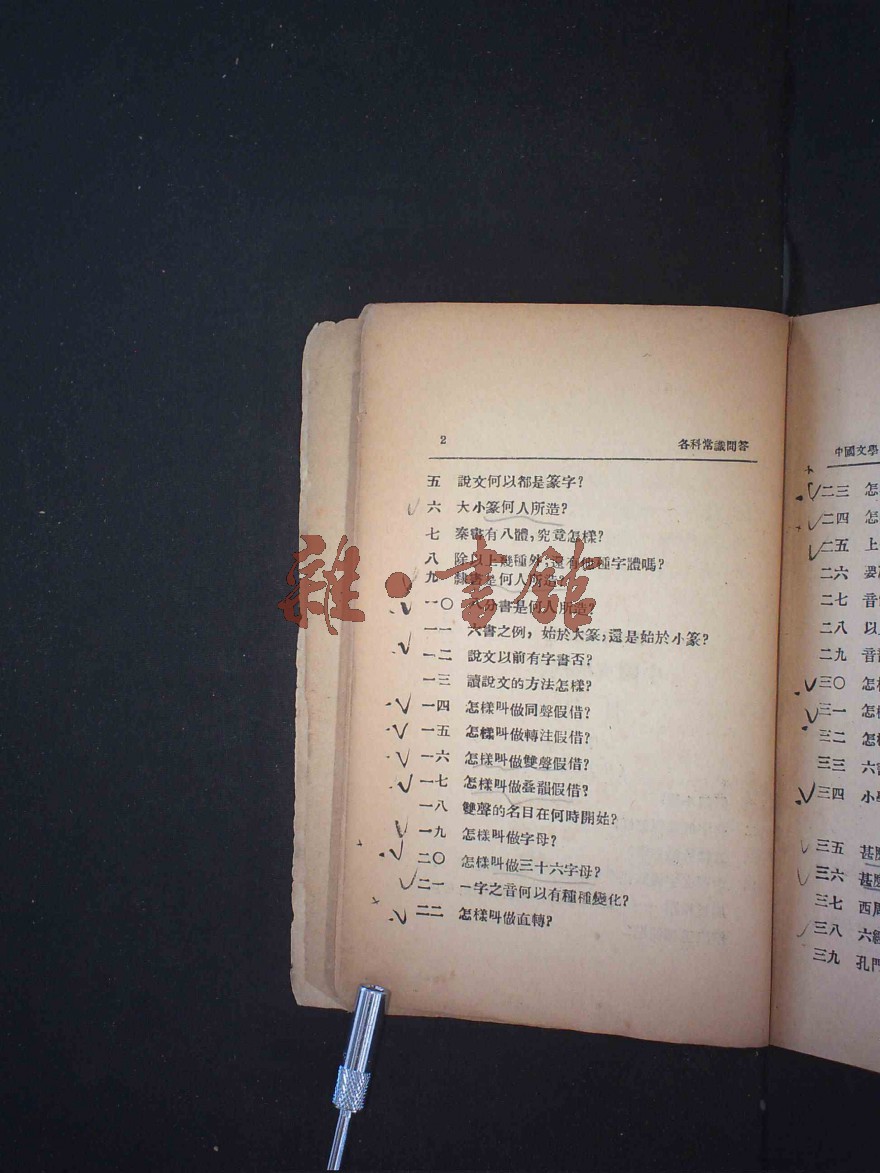 2 各科常識問答
五 說文何以都是篆字?
六 大小篆何人所造?
七 秦書有八體,究竟怎樣?
八 除以上幾種外,還有他種字體嗎?
九 隸書是何人所造?
一〇 八分書是何人所造?
一一 六書之例,始於大篆,還是始於小篆?
一二 說文以前有字書否?
一三 讀說文的方法怎樣?
一四 怎樣叫做同聲假借?
一五 怎樣叫做轉注假借?
一六 怎樣叫做雙聲假借?
一七 怎樣叫做叠韻假借?
一八 雙聲的名目在何時開始?
一九 怎樣叫做字母?
二〇 怎樣叫做三十六字母?
二一 一字之音何以有種種變化?
二二 怎樣叫做直轉?
中國文學
二三 怎
二四 怎
二五 上
二六
二七 音
二八 以
二九 音
三〇 怎
三一 怎
三二 怎
三三 六
三四 小
三五 甚
三六 甚
三七 西
三八 六
三九 孔門
雜·書館